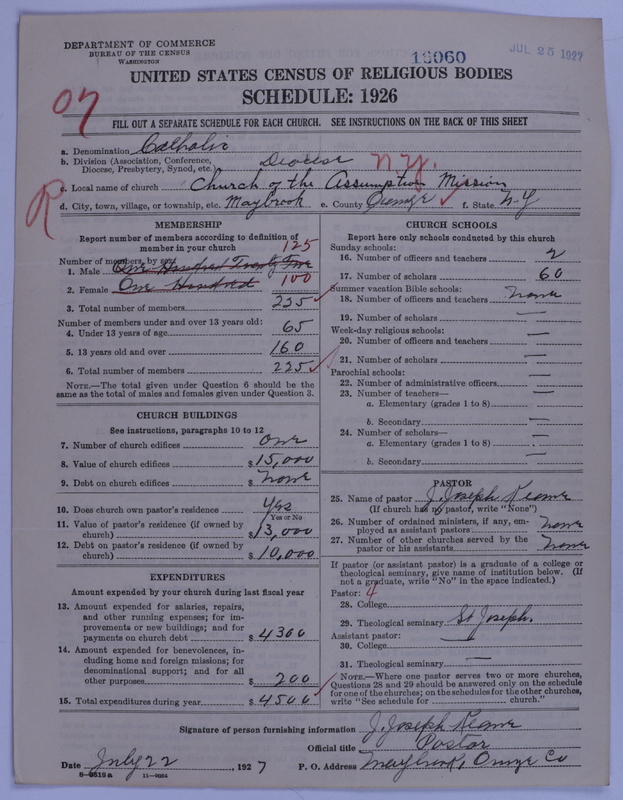 DEPARTMENT OF COMMERCE
BUREAU OF THE CENSUS
WASHINGTON
JUL 25 1927
UNITED STATES CENSUS OF RELIGIOUS BODIES
SCHEDULE: 1926
07
FILL OUT A SEPARATE SCHEDULE FOR EACH CHURCH. SEE INSTRUCTIONS ON THE BACK OF THIS SHEET
a. Denomination Catholic
b. Division (Association, Conference, Diocese, Presbytery, Synod, etc.) Diocese N.Y.
R
c. Local name of church Church of the Assumption Mission
d. City, town, village, or township, etc. Maybrook e. County Orange f. State N-Y
MEMBERSHIP
Report number of members according to definition of
member in your church
Number of members, by sex:
1. Male One Hundred Twenty Five 125
2. Female One Hundred 100
3. Total number of members 225
Number of members under and over 13 years old:
4. Under 13 years of age 65
5. 13 years old and over 160
6. Total number of members 225
NOTE.—The total given under Question 6 should be
same as the total of males and females given under Question 3.
CHURCH BUILDINGS
See instructions, paragraphs 10 to 12
7. Number of church edifices One
8. Value of church edifices $15,000
9. Debt on church edifices $ None
10. Does church own pastor's residence Yes
Yes or No
11. Value of pastor's residence (if owned by
church) $13,000
12. Debt on pastor's residence (if owned by
church) $10,000
EXPENDITURES
Amount expended by your church during last fiscal year
13. Amount expended for salaries, repairs,
and other running expenses; for im-
provements or new buildings; and for
payments on church debt $4300
14. Amount expended for benevolences, in-
cluding home and foreign missions; for
denominational support; and for all
other purposes $ 200
15. Total expenditures during year $4500
CHURCH SCHOOLS
Report here only schools conducted by this church
Sunday schools:
16. Number of officers and teachers 2
17. Number of scholars 60
Summer vacation Bible schools:
18. Number of officers and teachers None
19. Number of scholars —
Week-day religious schools:
20. Number of officers and teachers —
21. Number of scholars —
Parochial schools:
22. Number of administrative officers —
23. Number of teachers—
a. Elementary (grades 1 to 8) —
b. Secondary —
24. Number of scholars—
a. Elementary (grades 1 to 8) —
b. Secondary —
PASTOR
25. Name of pastor J. Joseph Keane
(If church has no pastor, write "None")
26. Number of ordained ministers, if any, em-
ployed as assistant pastors None
27. Number of other churches served by the
pastor or his assistants None
If pastor (or assistant pastor) is a graduate of a college or
theological seminary, give name of institution below. (If
not a graduate, write "No" in the space indicated.)
Pastor: 4
28. College
29. Theological seminary St Joseph.
Assistant pastor:
30. College —
31. Theological seminary —
NOTE.—Where one pastor serves two or more churches,
Questions 28 and 29 should be answered only on the schedule
for one of the churches; on the schedules for the other churches,
write "See schedule for church."
Signature of person furnishing information J. Joseph Keane
Official title Pastor
Date July 22, 1927 P. O. Address Maybrook, Orange Co